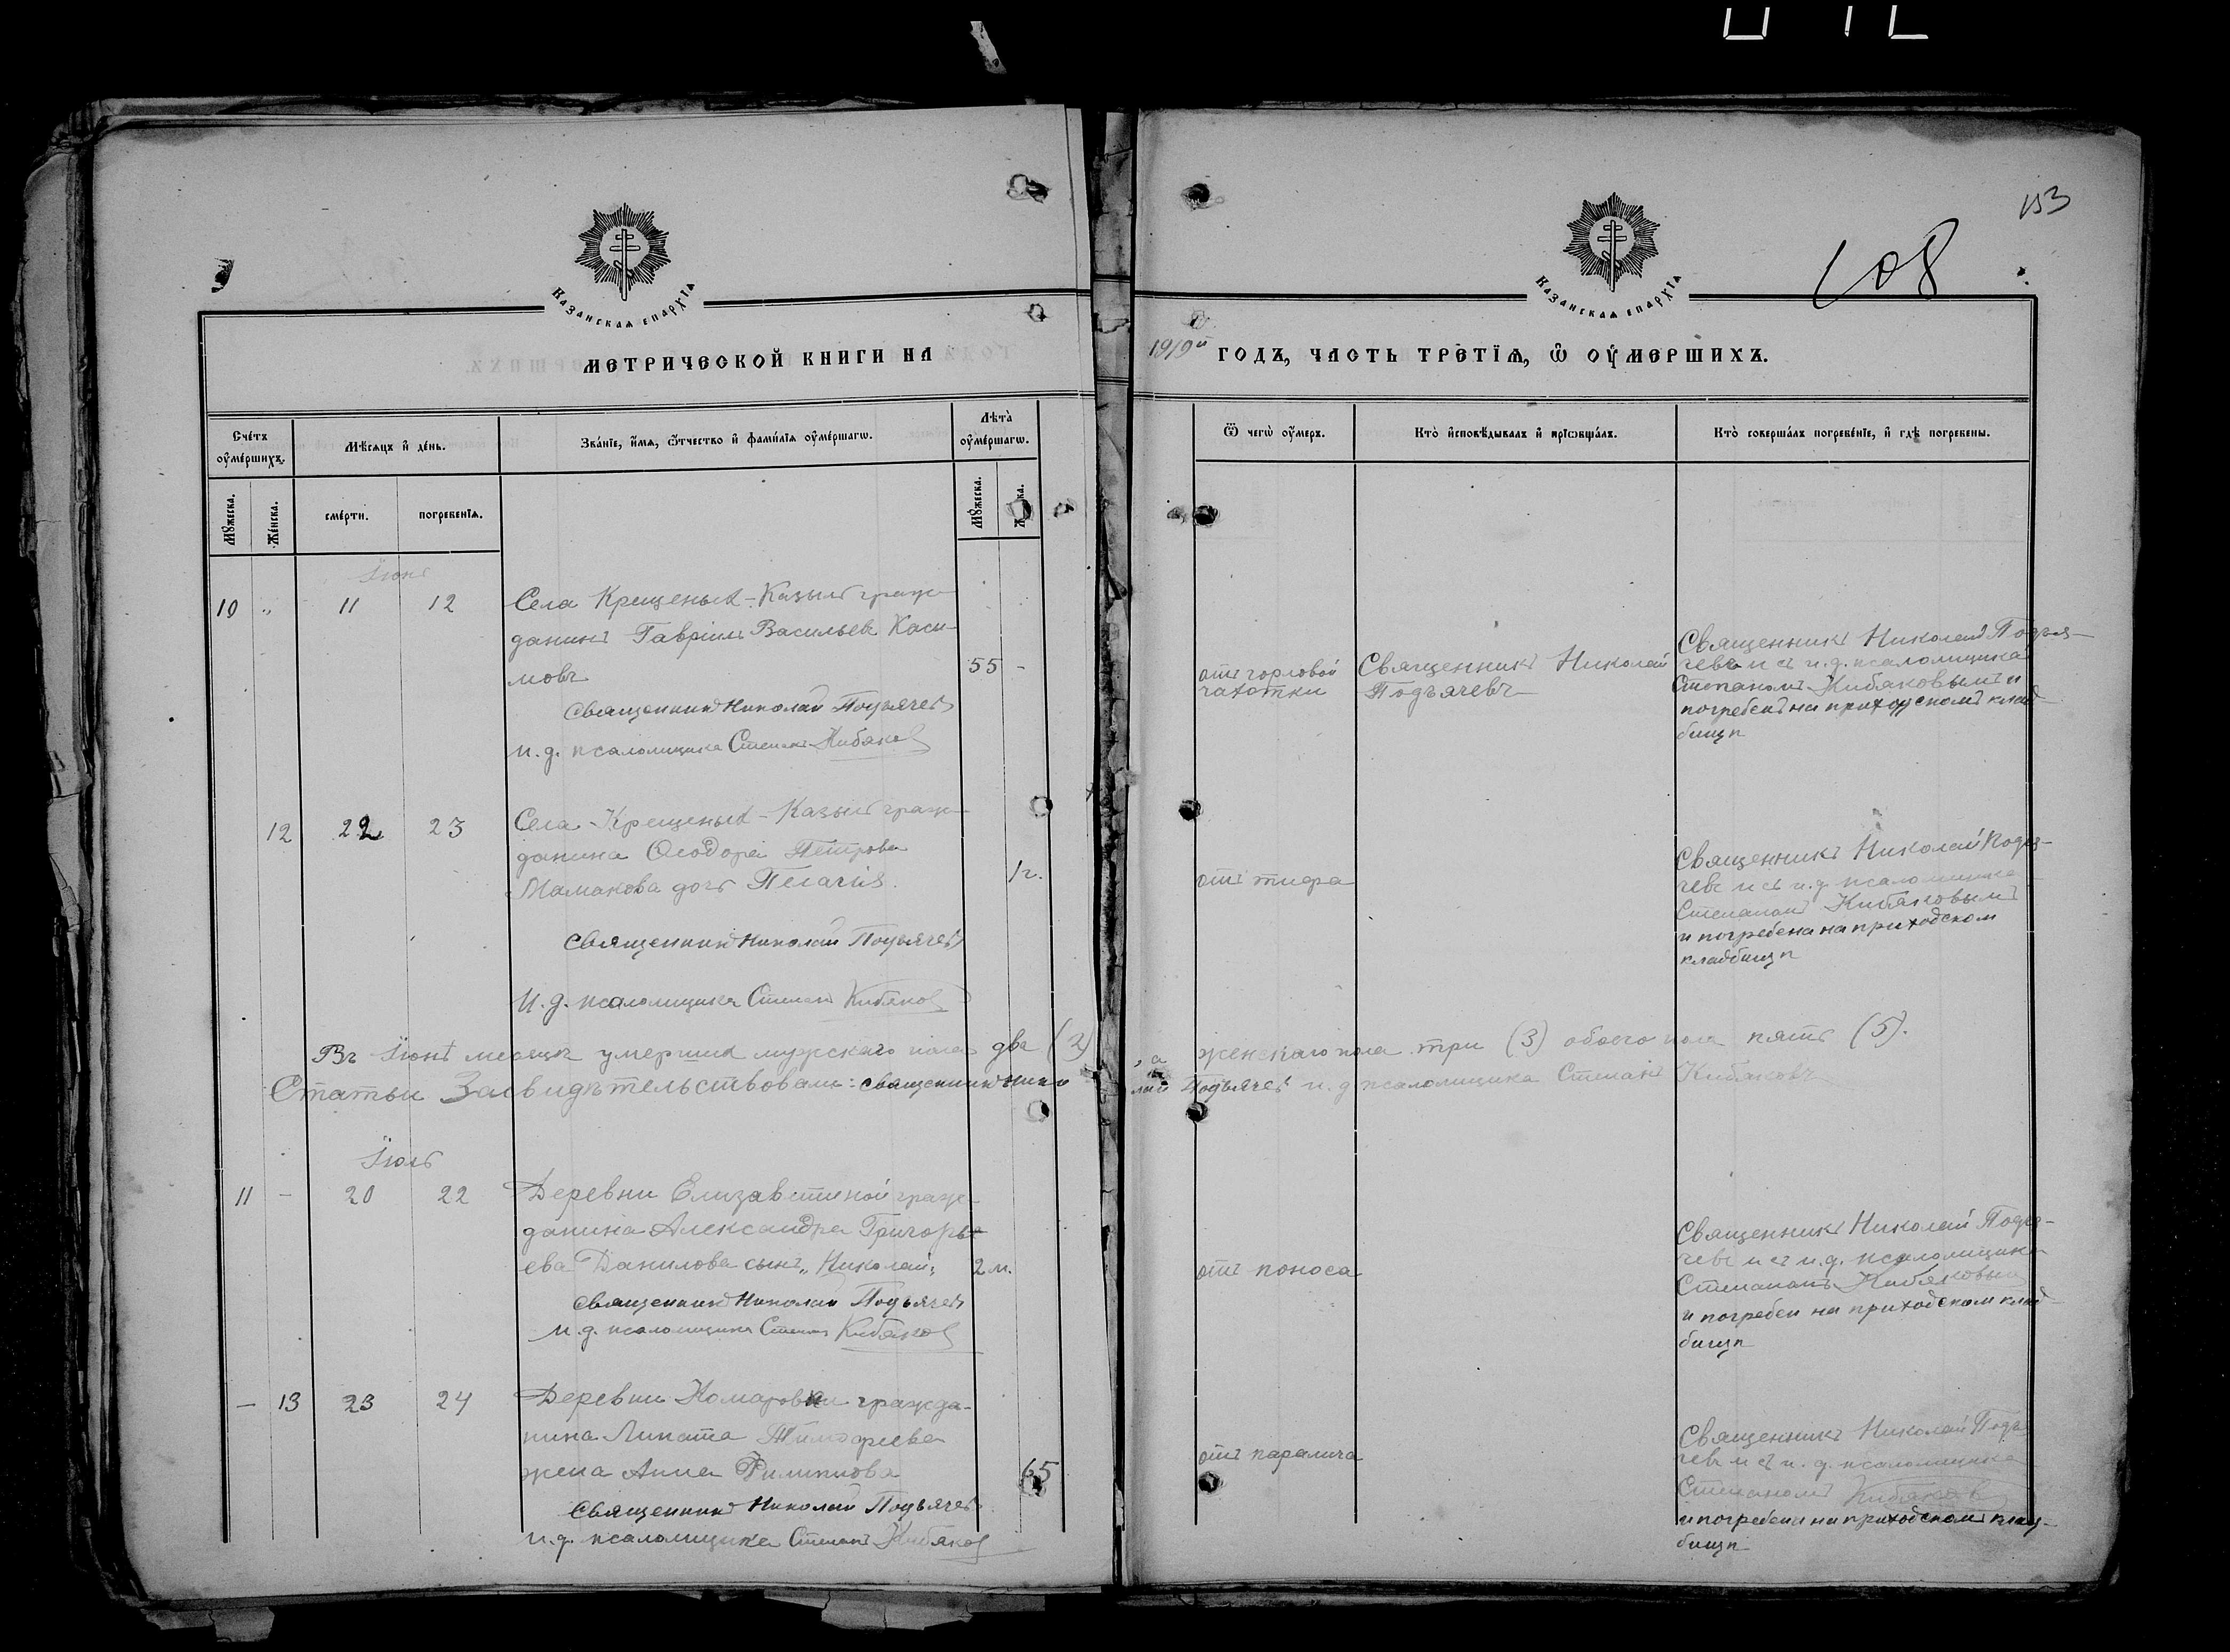 153
108
Казанская епархїа
Казанская епархїа
МЕТРИЧЕСКОЙ КНИГИ НА
1919й ГОДЪ, ЧАСТЬ ТРЕТЇѦ, Ѿ ОУМЕРШИХЪ.
Счетъ оумершихъ.
Мѣсяцъ и день.
Званїе, имя, отчество и фамилїа оумершагѡ.
Лѣта оумершагѡ.
Ѿ чегѡ оумеръ.
Кто исповѣдывалъ и прїобщалъ.
Кто совершалъ погребенїе, и гдѣ погребены.
Мужеска.
Женска.
смерти.
погребенїя.
Мужеска.
Іюнь
10 " 11 12 Села Крещеныхъ-Казыль граж-
данинъ Гавріилъ Васильевъ Каси-
мовъ
55 -
Священникъ Николай Подъячевъ
И.д. псаломщика Степанъ Кибяковъ
отъ горловой
чахотки
Священникъ Николай
Подъячевъ
Священникъ Николай Подъя-
чевъ и съ и.д. псаломщика
Степаномъ Кибяковымъ и
погребенъ на приходскомъ клад-
бищѣ
12 22 23 Села Крещеныхъ-Казыль граж-
данина Ѳеодора Петрова
Мамакова дочь Пелагія.
1 г.
Священникъ Николай Подъячевъ
И.д. псаломщика Степанъ Кибяковъ
отъ тифа
Священникъ Николай Подъя-
чевъ и съ и.д. псаломщика
Степаномъ Кибяковымъ
и погребена на приходском
кладбищѣ
Въ Іюнѣ месяцѣ умершихъ мужскаго пола два (2), а женскаго пола три (3) обоего пола пять (5).
Статьи Засвидѣтельствовали: священникъ Николай Подъячевъ и.д. псаломщика Степанъ Кибяковъ
Іюль
11 - 20 22 Деревни Елизаветиной граж-
данина Александра Григорь-
ева Данилова сынъ "Николай"
2 м.
Священникъ Николай Подъячевъ
И.д. псаломщика Степанъ Кибяковъ
отъ поноса
Священникъ Николай Подъя-
чевъ и съ и.д. псаломщика
Степаномъ Кибяковым
и погребен на приходском клад-
бищѣ
- 13 23 24 Деревни Комаровки гражда-
нина Липата Тимофеева
жена Анна Филиппова
65
Священникъ Николай Подъячевъ
И.д. псаломщика Степанъ Кибяковъ
отъ паралича
Священникъ Николай Подъя-
чевъ и съ и.д. псаломщика
Степаномъ Кибяковъ
и погребена на приходскомъ клад-
бищѣ